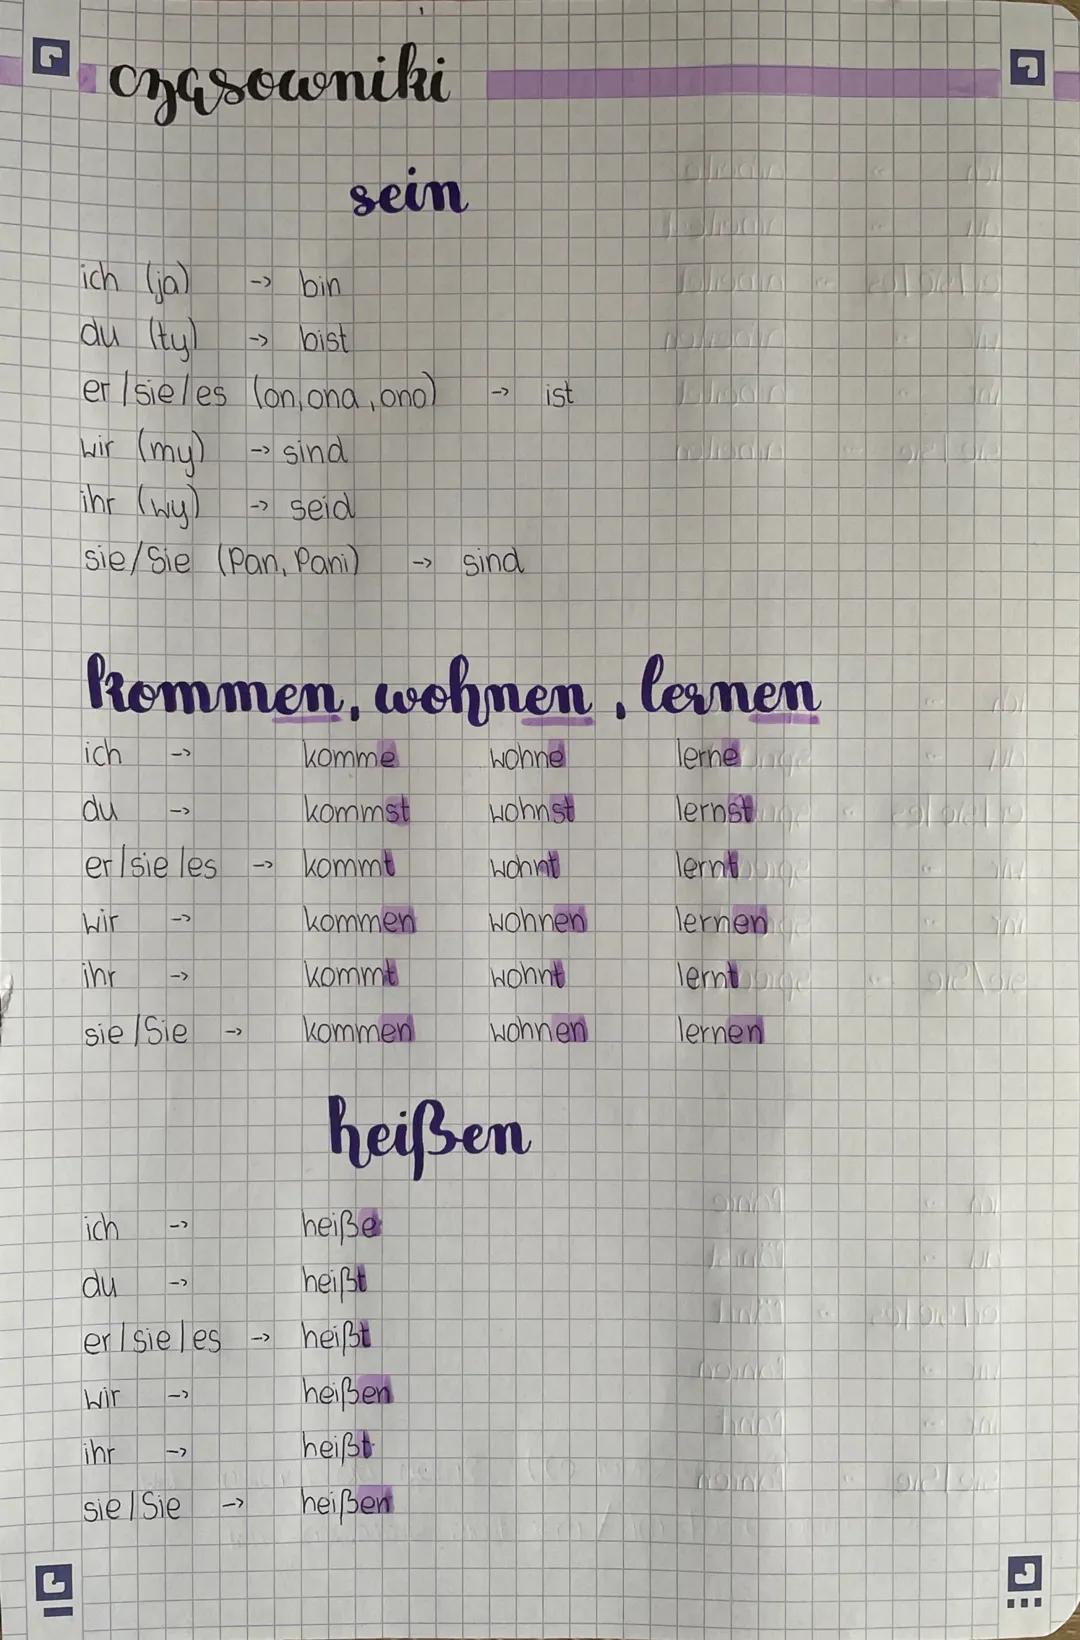 czasowniki
sein
ich (ja) -> bin
du (ty) -> bist
er/sie/es (on, ona, ono) -> ist
wir (my) -> sind
ihr (wy) -> seid
sie/Sie (Pan, Pani) -> sind
kommen, wohnen, lernen
ich -> komme wohne lerne
du -> kommst wohnst lernst
er/sie/es -> kommt wohnt lernt
wir -> kommen wohnen lernen
ihr -> kommt wohnt lernt
sie/Sie -> kommen wohnen lernen
heißen
ich -> heiße
du -> heißt
er/sie/es -> heißt
wir -> heißen
ihr -> heißt
sie/Sie -> heißen